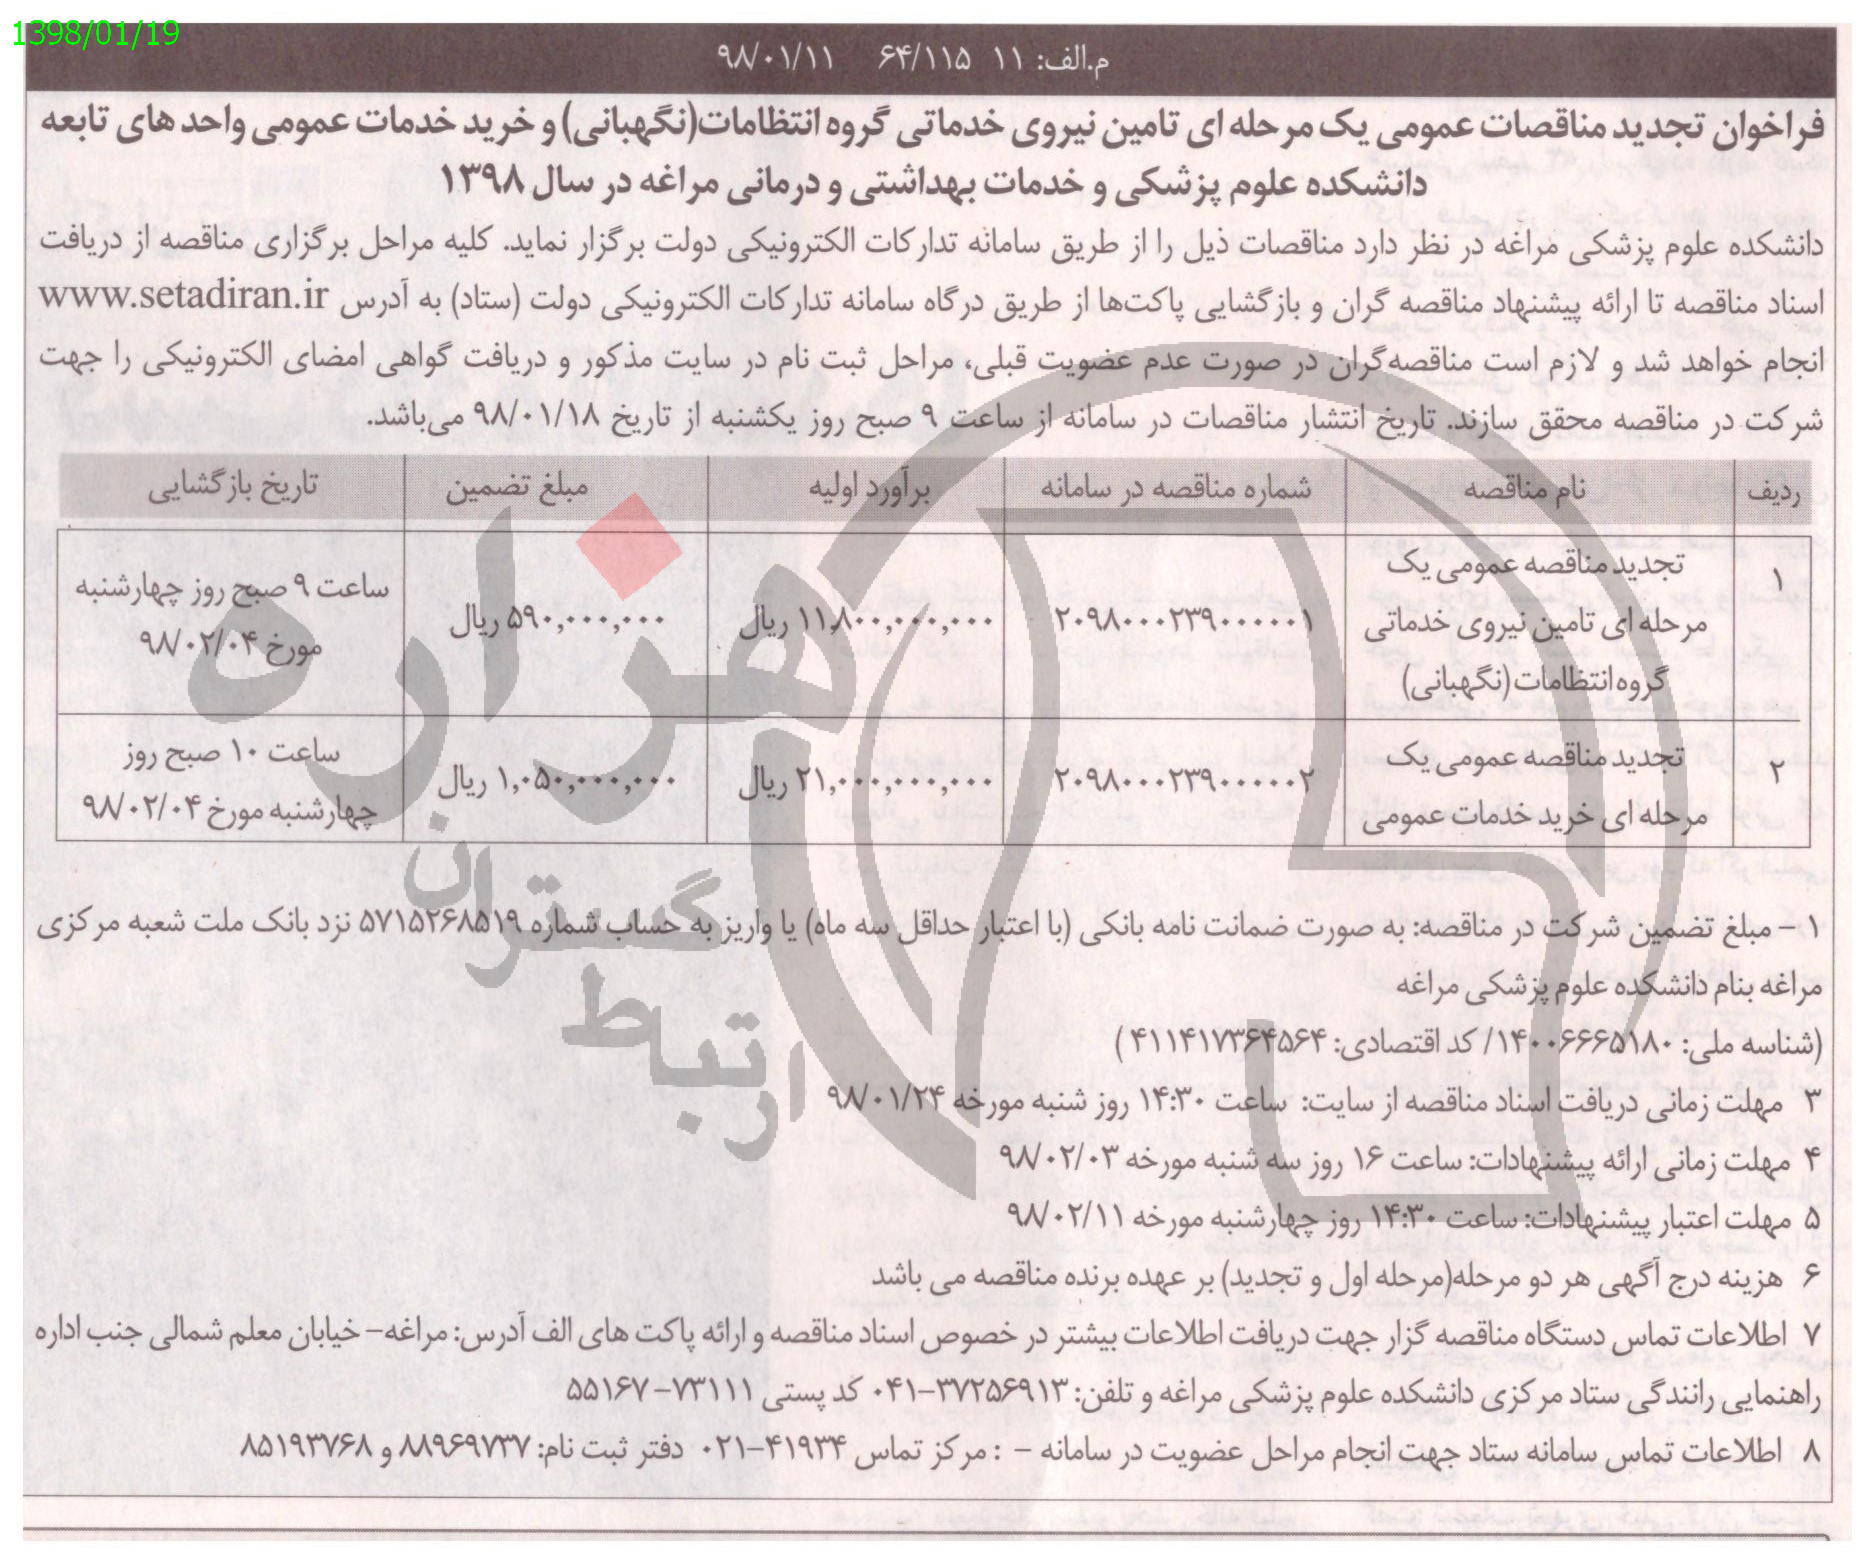 1398/01/19
م.الف: ۱۱ ۶۴/۱۱۵ ۹۸/۰۱/۱۱
فراخوان تجدید مناقصات عمومی یک مرحله ای تامین نیروی خدماتی گروه انتظامات(نگهبانی) و خرید خدمات عمومی واحد های تابعه
دانشکده علوم پزشکی و خدمات بهداشتی و درمانی مراغه در سال ۱۳۹۸
دانشکده علوم پزشکی مراغه در نظر دارد مناقصات ذیل را از طریق سامانه تدارکات الکترونیکی دولت برگزار نماید. کلیه مراحل برگزاری مناقصه از دریافت
اسناد مناقصه تا ارائه پیشنهاد مناقصه گران و بازگشایی پاکت‌ها از طریق درگاه سامانه تدارکات الکترونیکی دولت (ستاد) به آدرس www.setadiran.ir
انجام خواهد شد و لازم است مناقصه‌گران در صورت عدم عضویت قبلی، مراحل ثبت نام در سایت مذکور و دریافت گواهی امضای الکترونیکی را جهت
شرکت در مناقصه محقق سازند. تاریخ انتشار مناقصات در سامانه از ساعت ۹ صبح روز یکشنبه از تاریخ ۹۸/۰۱/۱۸ می‌باشد.
ردیف نام مناقصه شماره مناقصه در سامانه برآورد اولیه مبلغ تضمین تاریخ بازگشایی
۱ تجدید مناقصه عمومی یک
مرحله ای تامین نیروی خدماتی
گروه انتظامات (نگهبانی)
۲۰۹۸۰۰۰۲۳۹۰۰۰۰۰۱ ۱۱,۸۰۰,۰۰۰,۰۰۰ ریال ۵۹۰,۰۰۰,۰۰۰ ریال
ساعت ۹ صبح روز چهارشنبه
مورخ ۹۸/۰۲/۰۴
۲ تجدید مناقصه عمومی یک
مرحله ای خرید خدمات عمومی
۲۰۹۸۰۰۰۲۳۹۰۰۰۰۰۲ ۲۱,۰۰۰,۰۰۰,۰۰۰ ریال ۱,۰۵۰,۰۰۰,۰۰۰ ریال
ساعت ۱۰ صبح روز
چهارشنبه مورخ ۹۸/۰۲/۰۴
۱ – مبلغ تضمین شرکت در مناقصه: به صورت ضمانت نامه بانکی (با اعتبار حداقل سه ماه) یا واریز به حساب شماره ۵۷۱۵۲۶۸۵۱۹ نزد بانک ملت شعبه مرکزی
مراغه بنام دانشکده علوم پزشکی مراغه
(شناسه ملی: ۱۴۰۰۶۶۶۵۱۸۰/ کد اقتصادی: ۴۱۱۴۱۷۳۶۴۵۶۴ )
۳ مهلت زمانی دریافت اسناد مناقصه از سایت: ساعت ۱۴:۳۰ روز شنبه مورخه ۹۸/۰۱/۲۴
۴ مهلت زمانی ارائه پیشنهادات: ساعت ۱۶ روز سه شنبه مورخه ۹۸/۰۲/۰۳
۵ مهلت اعتبار پیشنهادات: ساعت ۱۴:۳۰ روز چهارشنبه مورخه ۹۸/۰۲/۱۱
۶ هزینه درج آگهی هر دو مرحله(مرحله اول و تجدید) بر عهده برنده مناقصه می باشد
۷ اطلاعات تماس دستگاه مناقصه گزار جهت دریافت اطلاعات بیشتر در خصوص اسناد مناقصه و ارائه پاکت های الف آدرس: مراغه– خیابان معلم شمالی جنب اداره
راهنمایی رانندگی ستاد مرکزی دانشکده علوم پزشکی مراغه و تلفن: ۳۷۲۵۶۹۱۳–۰۴۱ کد پستی ۷۳۱۱۱–۵۵۱۶۷
۸ اطلاعات تماس سامانه ستاد جهت انجام مراحل عضویت در سامانه – : مرکز تماس ۴۱۹۳۴–۰۲۱ دفتر ثبت نام: ۸۸۹۶۹۷۳۷ و ۸۵۱۹۳۷۶۸
هزاره
گستران
ارتباط